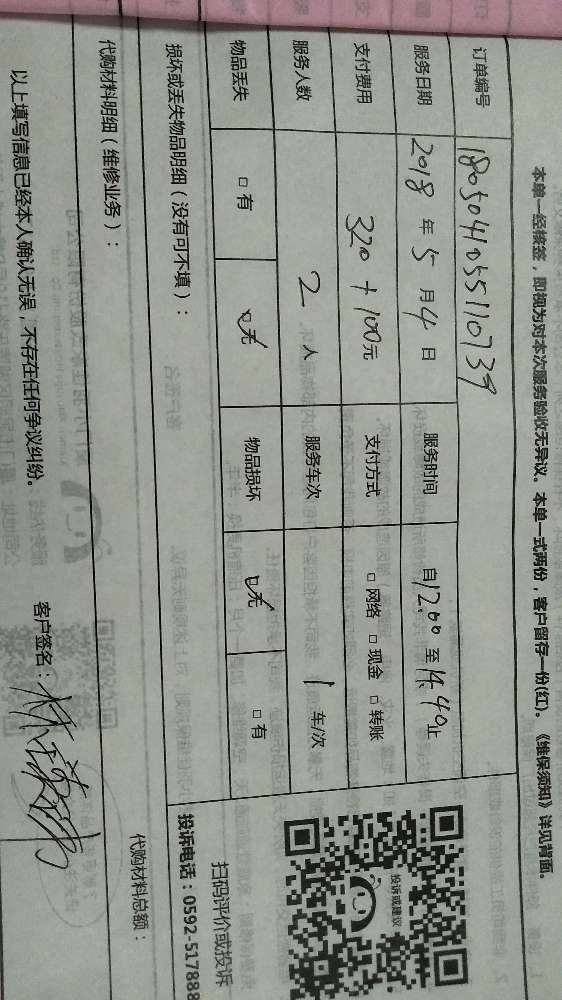 本单一经核签，即视为对本次服务验收无异议。本单一式两份，客户留存一份(红)。《维保须知》详见背面。
订单编号 1805041055110739
服务日期 2018 年 5 月 4 日 服务时间 自 12.00 至 14.40 止
支付费用 320 + 100 元 支付方式 □ 网络 □ 现金 □ 转账
服务人数 2 人 服务车次 1 车/次
物品丢失 □ 有 □ 无 物品损坏 □ 无 □ 有
损坏或丢失物品明细（没有可不填）：
投诉或建议
扫码评价或投诉
投诉电话：0592-517888
代购材料明细（维修业务）：
代购材料总额：
以上填写信息已经本人确认无误，不存在任何争议纠纷。 客户签名：